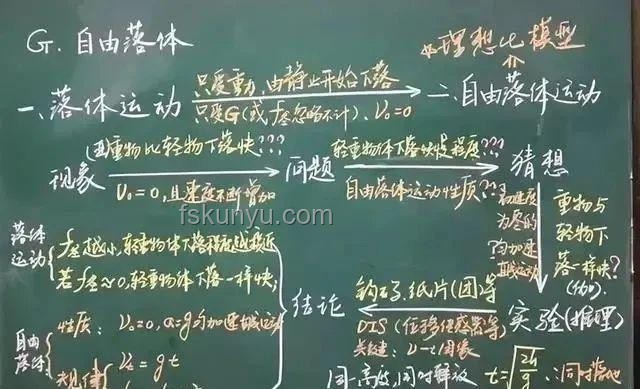 G. 自由落体
*理想化模型
一、落体运动
只受重力,由静止开始下落
只受G(或f空忽略不计)、V₀=0
二、自由落体运动
现象
重物比轻物下落快???
V₀=0,且速度不断增加
问题
轻重物体下落快慢程度??
自由落体运动性质??
猜想
初速度
为零的
匀加速
直线运动
重物与
轻物下
落一样快?
fskunyu.com
落体
运动
f空越小,轻重物体下落程度越接近
若f空≈0,轻重物体下落一样快;
自由
落体
性质:V₀=0,a=g匀加速
规律
Vt=gt
结论
钩码,纸片(团)等
DIS(位移传感器等)
关键:v-t图象
实验(推理)
同一高度,同时释放
t=√(2h/g)
∴同时落地